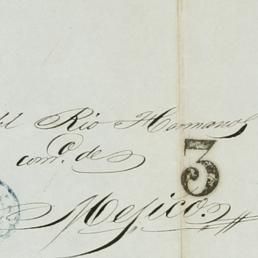 del Rio Hermanos
com.o de
3
Mejico.